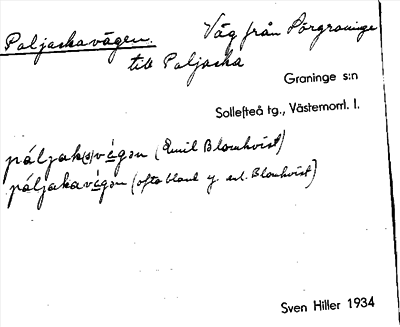 Paljackavägen. Väg från Pörgraninge
till Paljacka
Graninge s:n
Sollefteå tg., Västernorrl. l.
páljak(a)vä́gən (Emil Blomkvist)
páljakavä́gən (ofta bland y. enl. Blomkvist)
Sven Hiller 1934